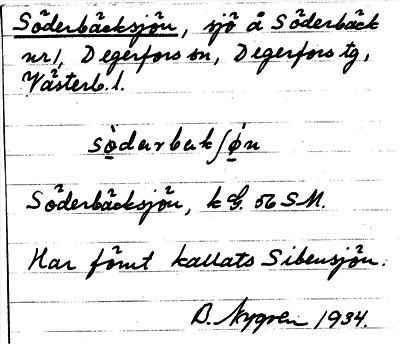 Söderbäcksjön, sjö å Söderbäck
nr 1, Degerfors sn, Degerfors tg,
Västerb. l.
sòderbɛkʃǿn
Söderbäcksjön, k G. 56 SM.
Har förut kallats Sibensjön.
B. Nygren 1934.